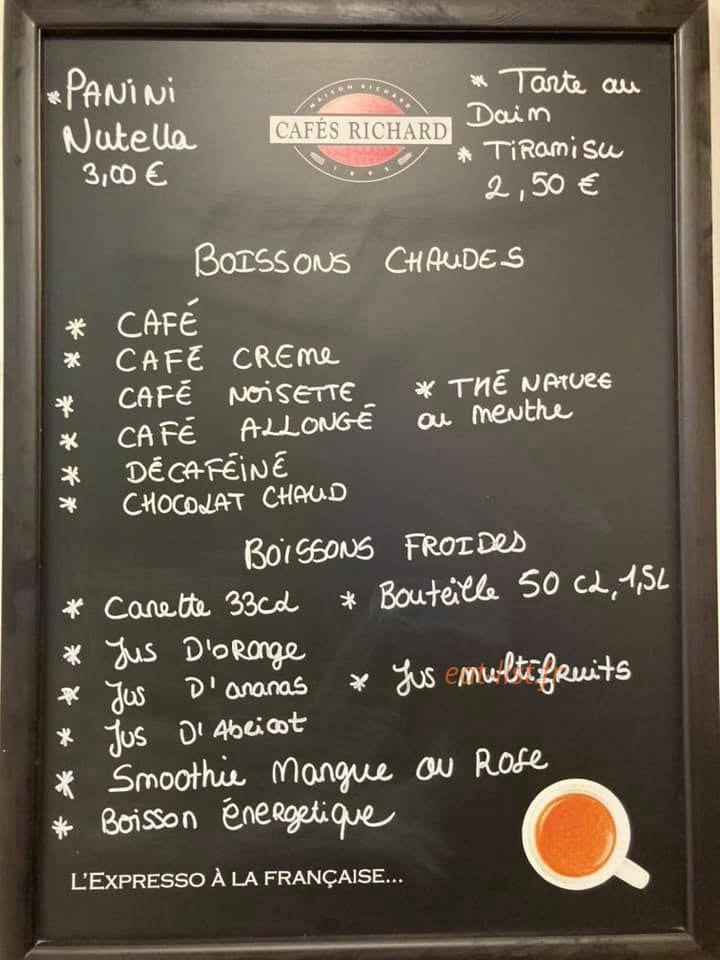 * PANiNi
Nutella
3,00 €
MAISON RICHARD
CAFÉS RICHARD
1892
* Tarte au
Daim
* TiRamisu
2,50 €
BOISSONS CHAUDES
* CAFÉ
* CAFÉ CREme
* CAFÉ NOiSETTE
* CAFÉ ALLONGÉ
* THÉ NATURE
ou menthe
* DÉCAFÉiNÉ
* CHOCOLAT CHAUD
BOiSSONS FROiDES
* Canette 33cl
* Bouteille 50 cL, 1,5L
* Jus D'oRange
* Jus D'ananas
* Jus multifruits
eat-list.fr
* Jus D'Abricot
* Smoothie Mangue ou Rose
* Boisson énergetique
L'EXPRESSO À LA FRANÇAISE...